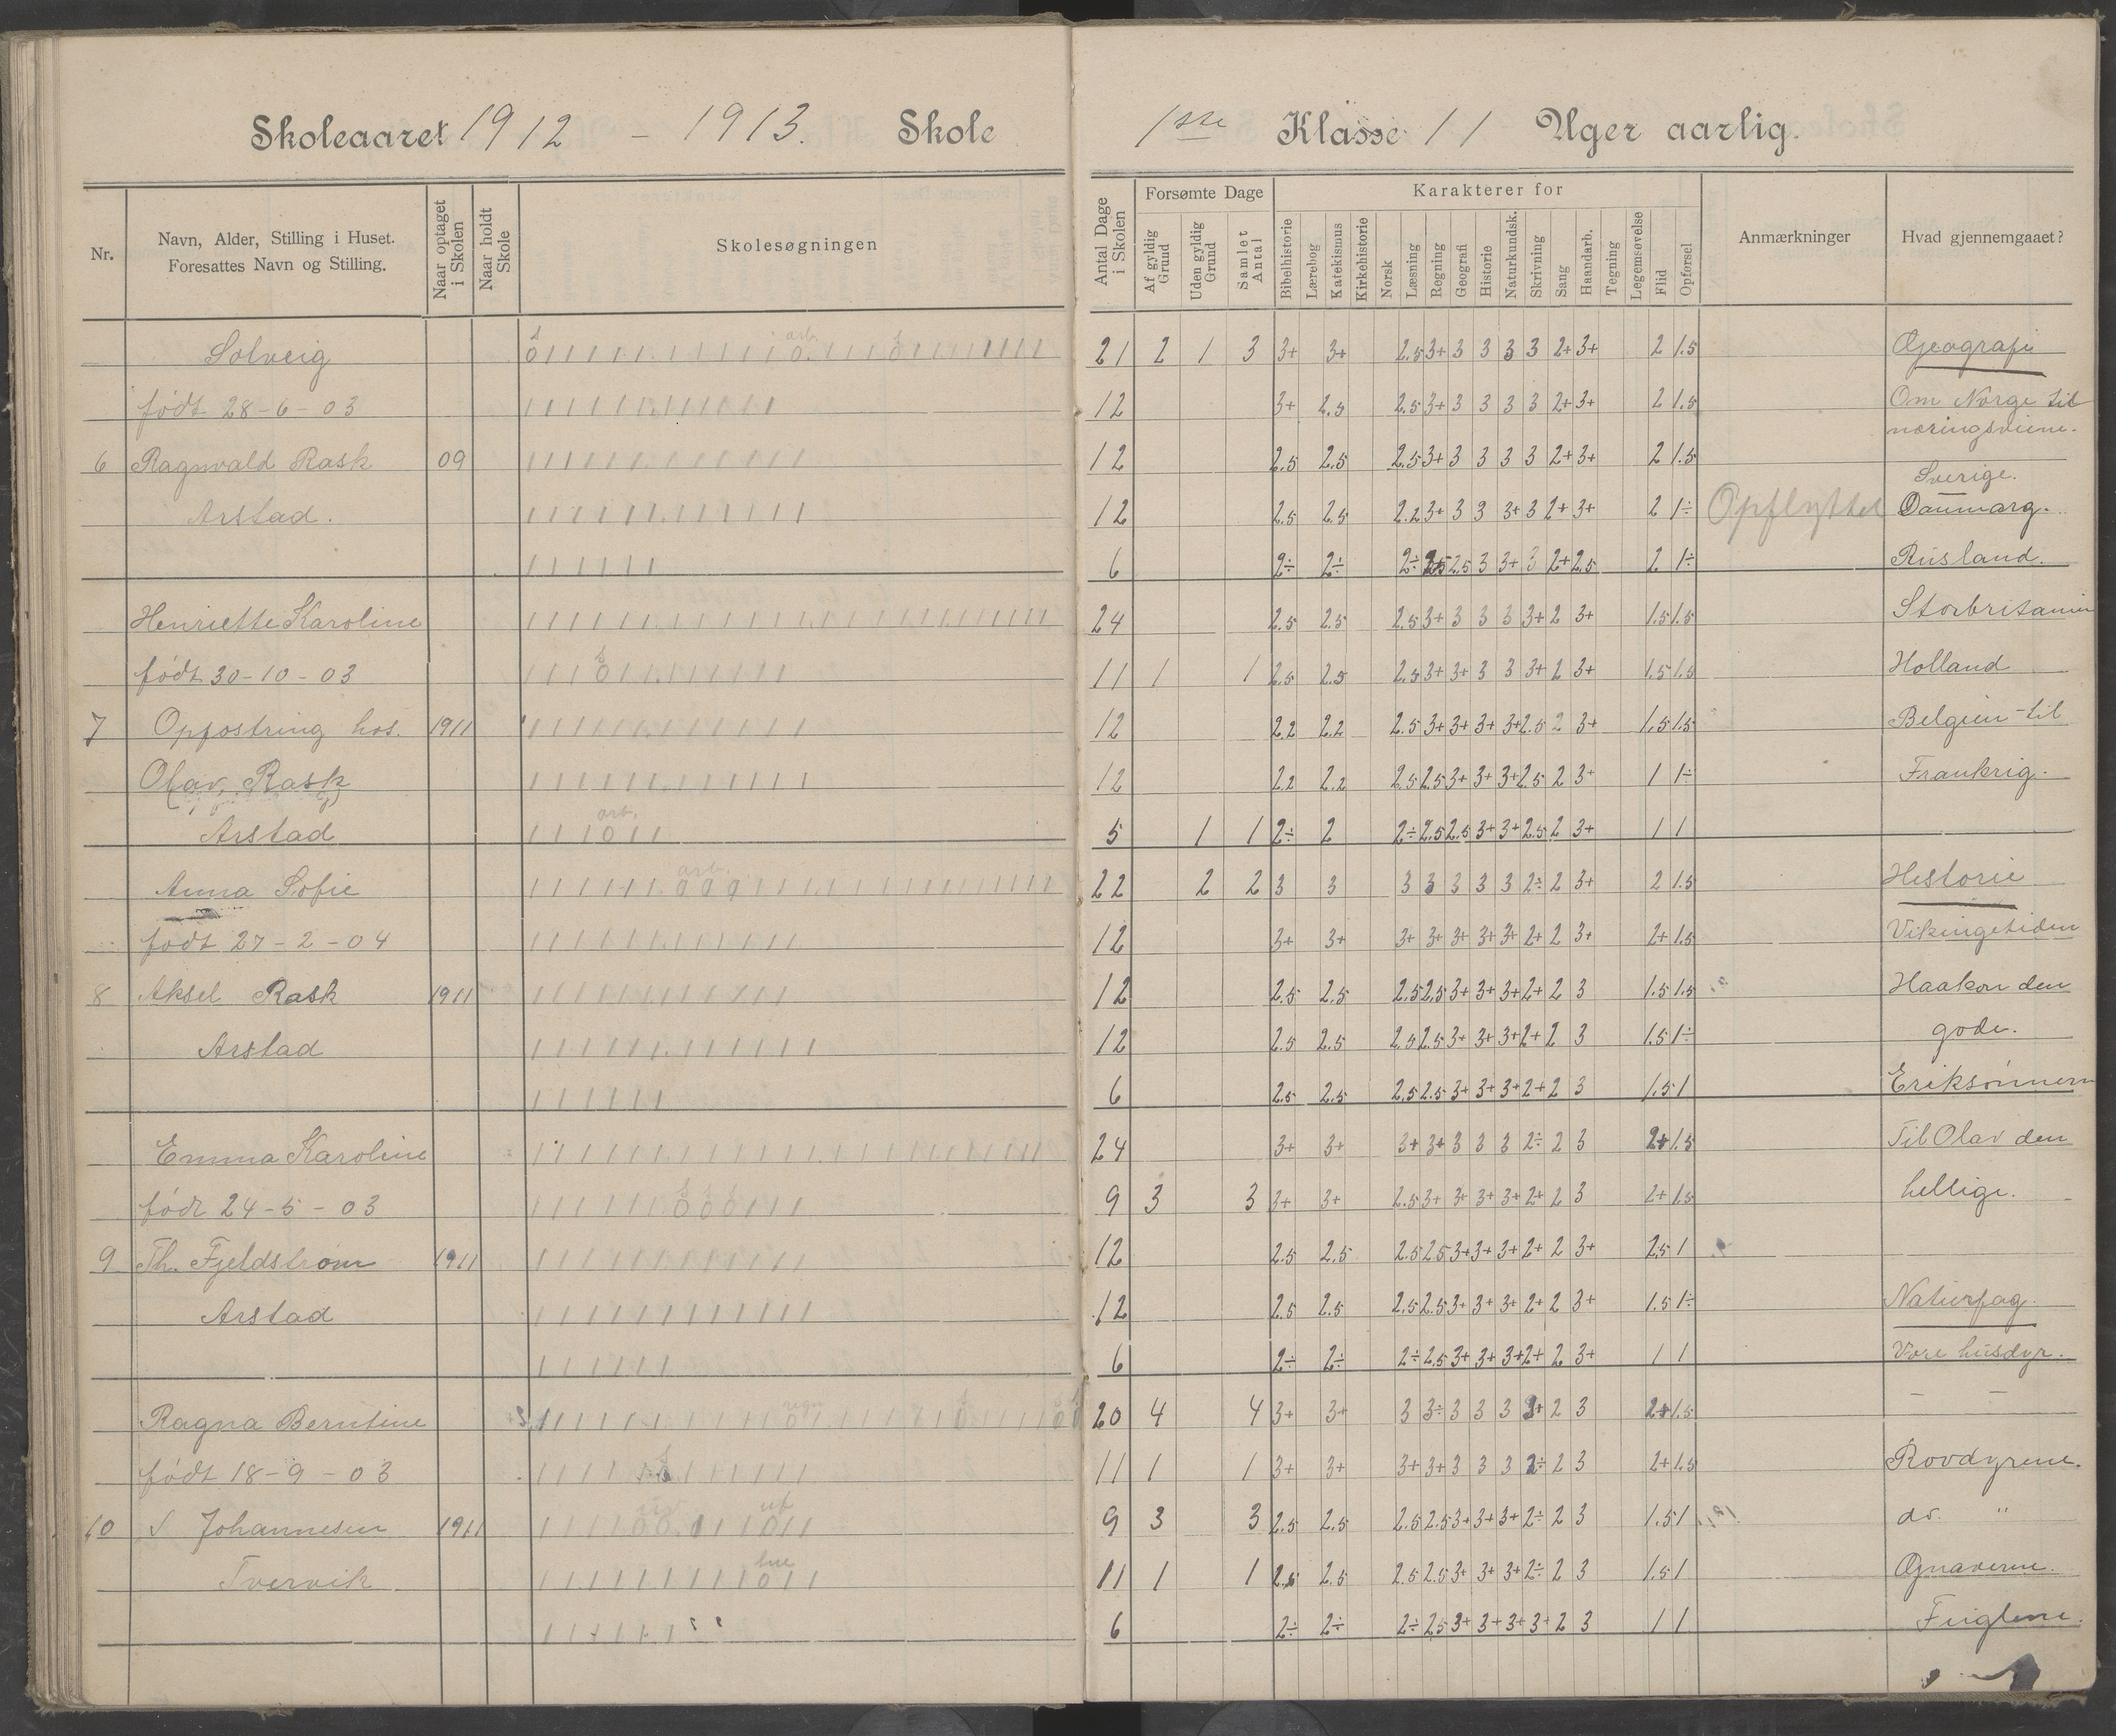 Skoleaaret 1912 - 1913. Skole
1ste Klasse 11 Uger aarlig.
Nr.
Navn, Alder, Stilling i Huset.
Foresattes Navn og Stilling.
Naar optaget i Skolen
Naar holdt Skole
Skolesøgningen
Antal Dage i Skolen
Forsømte Dage
Af gyldig Grund
Uden gyldig Grund
Samlet Antal
Karakterer for
Bibelhistorie
Lærebog
Katekismus
Kirkehistorie
Norsk
Læsning
Regning
Geografi
Historie
Naturkundsk.
Skrivning
Sang
Haandarb.
Tegning
Legemsøvelse
Flid
Opførsel
Anmærkninger
Hvad gjennemgaaet?
Solveig 21 2 1 3 3+ 3+ 2.5 3+ 3 3 3 3 2+ 3+ 2 1.5 Geografi
født 28-6-03 12 3+ 2.5 2.5 3+ 3 3 3 3 2+ 3+ 2 1.5 Om Norge til
næringsveiene.
6 Ragnvald Rask 09 12 2.5 2.5 2.5 3+ 3 3 3 3 2+ 3+ 2 1.5
Sverige.
Arstad. 12 2.5 2.5 2.2 3+ 3 3 3+ 3 2+ 3+ 2 1÷ Opflyttet Danmarg.
6 2÷ 2÷ 2÷ 2.5 2.5 3 3+ 3 2+ 2.5 2 1÷ Rusland.
Henriette Karoline 24 2.5 2.5 2.5 3+ 3 3 3 3+ 2 3+ 1.5 1.5 Storbritanien
født 30-10-03 11 1 1 2.5 2.5 2.5 3+ 3+ 3 3 3+ 2 3+ 1.5 1.5 Holland
7 Opfostring hos. 1911 12 2.2 2.2 2.5 3+ 3+ 3+ 3+ 2.5 2 3+ 1.5 1.5 Belgien til
Olav, Rask 12 2.2 2.2 2.5 2.5 3+ 3+ 3+ 2.5 2 3+ 1 1÷ Frankrig.
arb.
Arstad 5 1 1 2÷ 2 2÷ 2.5 2.5 3+ 3+ 2.5 2 3+ 1 1
arb.
Anna Sofie 22 2 2 3 3 3 3 3 3 3 2÷ 2 3+ 2 1.5 Historie
født 27-2-04 12 3+ 3+ 3+ 3+ 3+ 3+ 3+ 2+ 2 3+ 2+ 1.5 Vikingetiden
8 Aksel Rask 1911 12 2.5 2.5 2.5 2.5 3+ 3+ 3+ 2+ 2 3 1.5 1.5 Haakon den
Arstad 12 2.5 2.5 2.5 2.5 3+ 3+ 3+ 2+ 2 3 1.5 1÷ gode.
6 2.5 2.5 2.5 2.5 3+ 3+ 3+ 2+ 2 3 1.5 1 Eriksønnern
Emma Karoline 24 3+ 3+ 3+ 3+ 3 3 3 2÷ 2 3 2+ 1.5 Til Olav den
født 24-5-03 9 3 3 3+ 3+ 2.5 3+ 3+ 3+ 3+ 2+ 2 3 2+ 1.5 hellige.
9 Th. Fjeldstrøm 1911 12 2.5 2.5 2.5 2.5 3+ 3+ 3+ 2+ 2 3+ 2.5 1
Arstad 12 2.5 2.5 2.5 2.5 3+ 3+ 3+ 2+ 2 3+ 1.5 1÷ Naturfag.
6 2÷ 2÷ 2÷ 2.5 3+ 3+ 3+ 2+ 2 3+ 1 1 Vore husdyr.
Ragna Berntine 20 4 4 3+ 3+ 3 3÷ 3 3 3 3+ 2 3 2+ 1.5 — —
født 18-9-03 11 1 1 3+ 3+ 3+ 3+ 3 3 3 2÷ 2 3 2+ 1.5 Rovdyrene.
10 Johannesen 1911 9 3 3 2.5 2.5 2.5 2.5 3+ 3+ 3+ 2÷ 2 3 1.5 1 do. "
Tvervik 11 1 1 2.5 2.5 2.5 2.5 3+ 3+ 3+ 2÷ 2 3 1.5 1 Gnaverne.
6 2÷ 2÷ 2÷ 2.5 3+ 3+ 3+ 3+ 2 3 1 1 Fuglene.